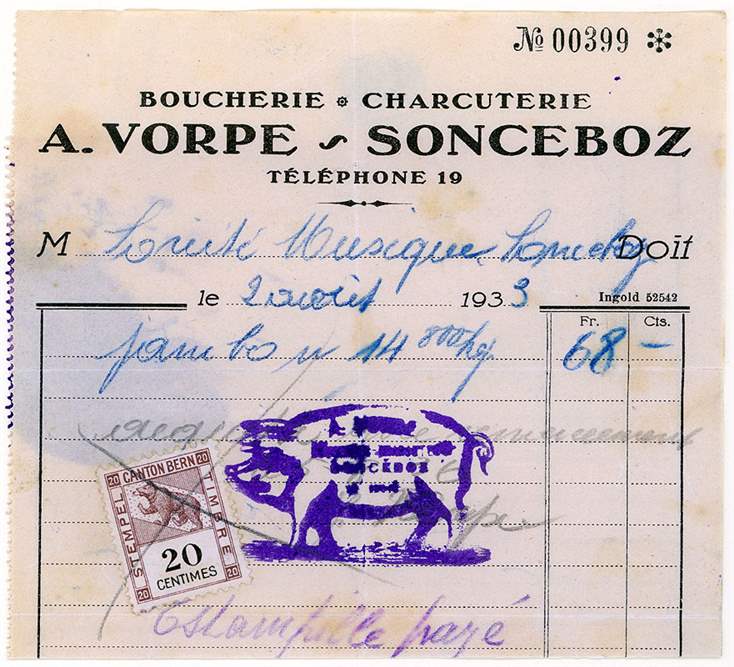 № 00399 ✻
BOUCHERIE ✵ CHARCUTERIE
A. VORPE ~ SONCEBOZ
TÉLÉPHONE 19
M Société Musique Doit
le 2 août 1933
Ingold 52542
Fr. Cts.
jambon 14 800 kg 68 –
acquitté remerciement
A. VORPE
SONCEBOZ
Vorpe
20 CANTON BERN 20
STEMPEL
TIMBRE
20
CENTIMES
20 20
Estampille payé